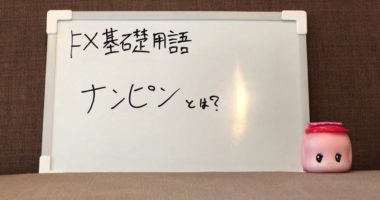 FX基礎用語
ナンピンとは?